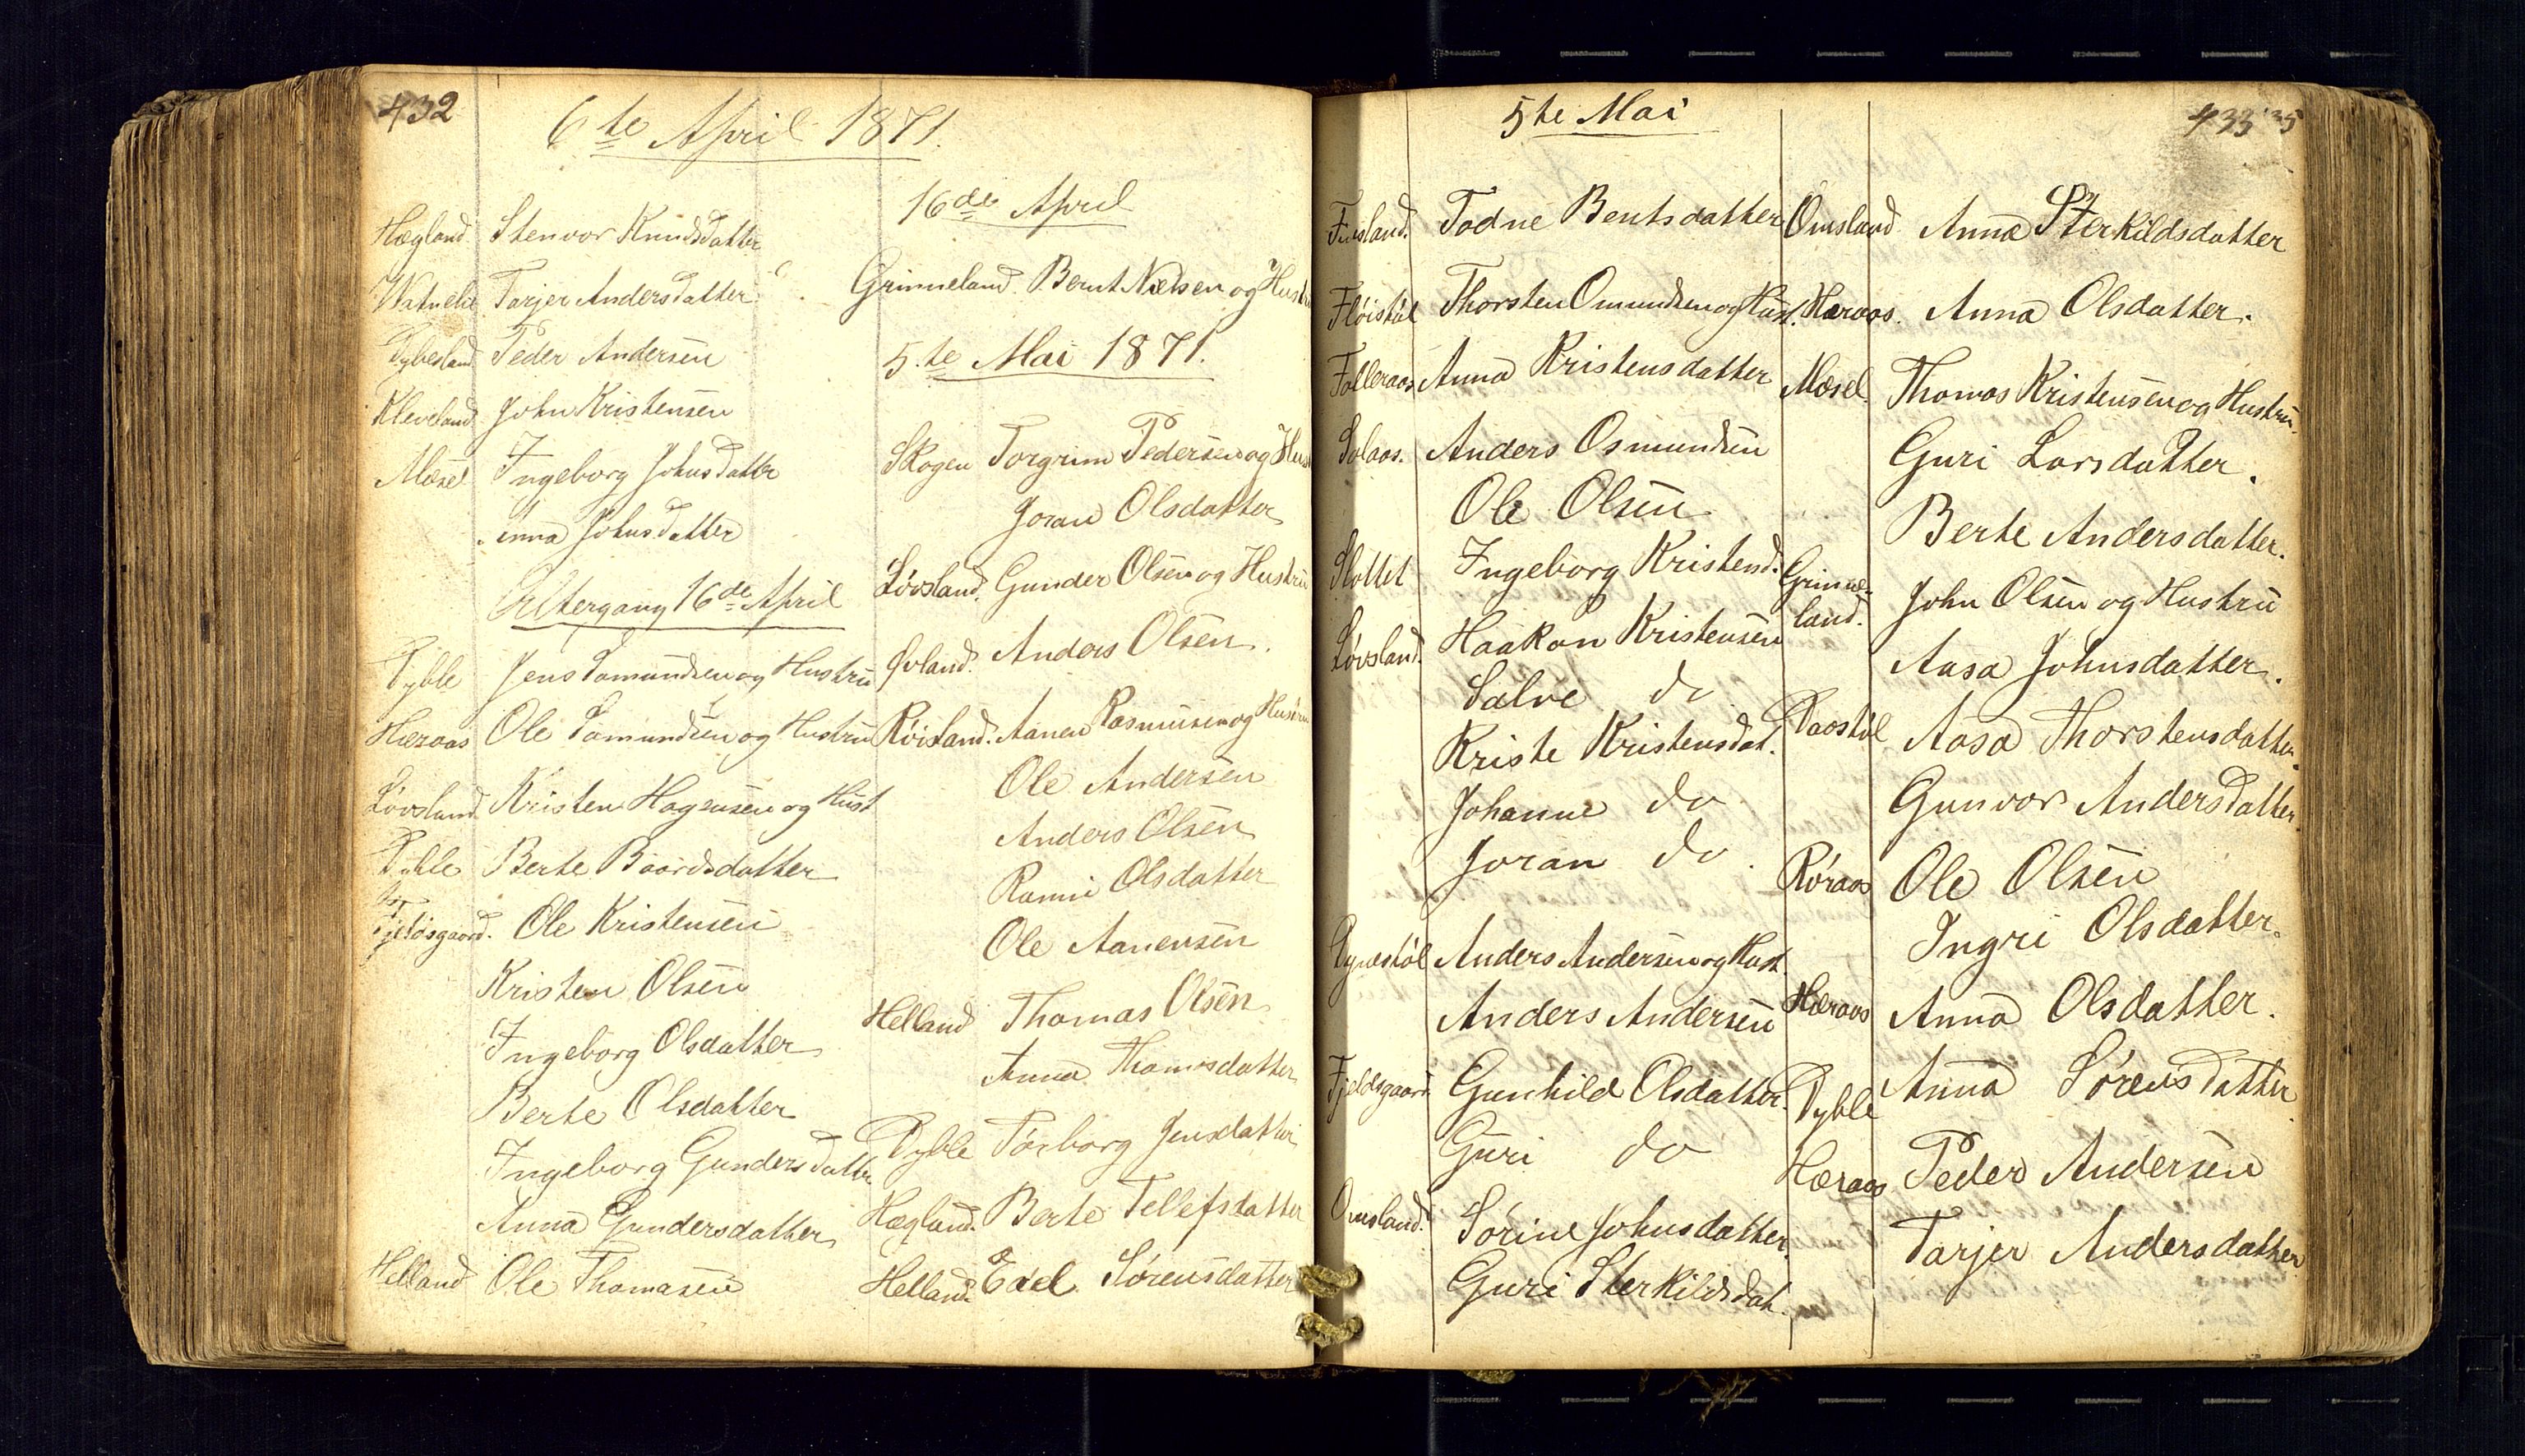 432
6te April 1871.
Hægland Stenvor Knudsdatter
Watnelie Tarjer Andersdatter
Dybesland Peder Andersen
Kleveland John Kristensen
Mæsel Ingeborg Johnsdatter
Anna Johnsdatter
Altergang 16de April
Dyble Jens Tomundsen og Hustru
Hæraas Ole Tomundsen og Hustru
Løvsland Kristen Hagensen og Hust
Dyble Berte Baardsdatter
Fjeldsgaard. Ole Kristensen
Kristen Olsen
Ingeborg Olsdatter
Berte Olsdatter
Ingeborg Gundersdatter
Anna Gundersdatter
Helland Ole Thomasen
16de April
Grinneland Bernt Nielsen og Hustru
5.te Mai 1871.
Skogen Torgrim Pedersen og Hust
Joran Olsdatter
Løvsland. Gunder Olsen og Hustru
Øvland. Anders Olsen.
Røisland. Aanen Rasmusen og Hustru
Ole Andersen
Anders Olsen
Ranni Olsdatter
Ole Aanensen
Helland Thomas Olsen
Anna Thomasdatter
Dyble Torborg Jensdatter
Hægland. Berte Tellefsdatter
Helland. Edel Sørensdatter
5te Mai
433
Fuesland. Todne Bentsdatter
Fløistøl Thorsten Omundsen og Hust.
Folleraas Anna Kristensdatter
Solaas. Anders Osmundsen
Ole Olsen
Slottet Ingeborg Kristensd.
Løvsland. Haakon Kristensen
Salve do
Kriste Kristensdat.
Johanne do
Joran do.
Dynestøl Anders Andersen og Hust.
Anders Andersen
Fjeldsgaard Gunhild Olsdatter.
Guri do
Omsland. Sørine Johnsdatter.
Guri Sterkildsdat.
Omsland Anna Sterkildsdatter
Hæraas. Anna Olsdatter.
Mæsel. Thomas Kristensen og Hustru.
Guri Larsdatter.
Berte Andersdatter.
Grinne-
land. John Olsen og Hustru
Aasa Johnsdatter.
Daastøl Aasa Thorstensdatter.
Gunvor Andersdatter.
Røraas Ole Olsen
Ingri Olsdatter.
Hæraas Anna Olsdatter.
Dyble Anna Sørensdatter
Hæraas Peder Andersen
Tarjer Andersdatter